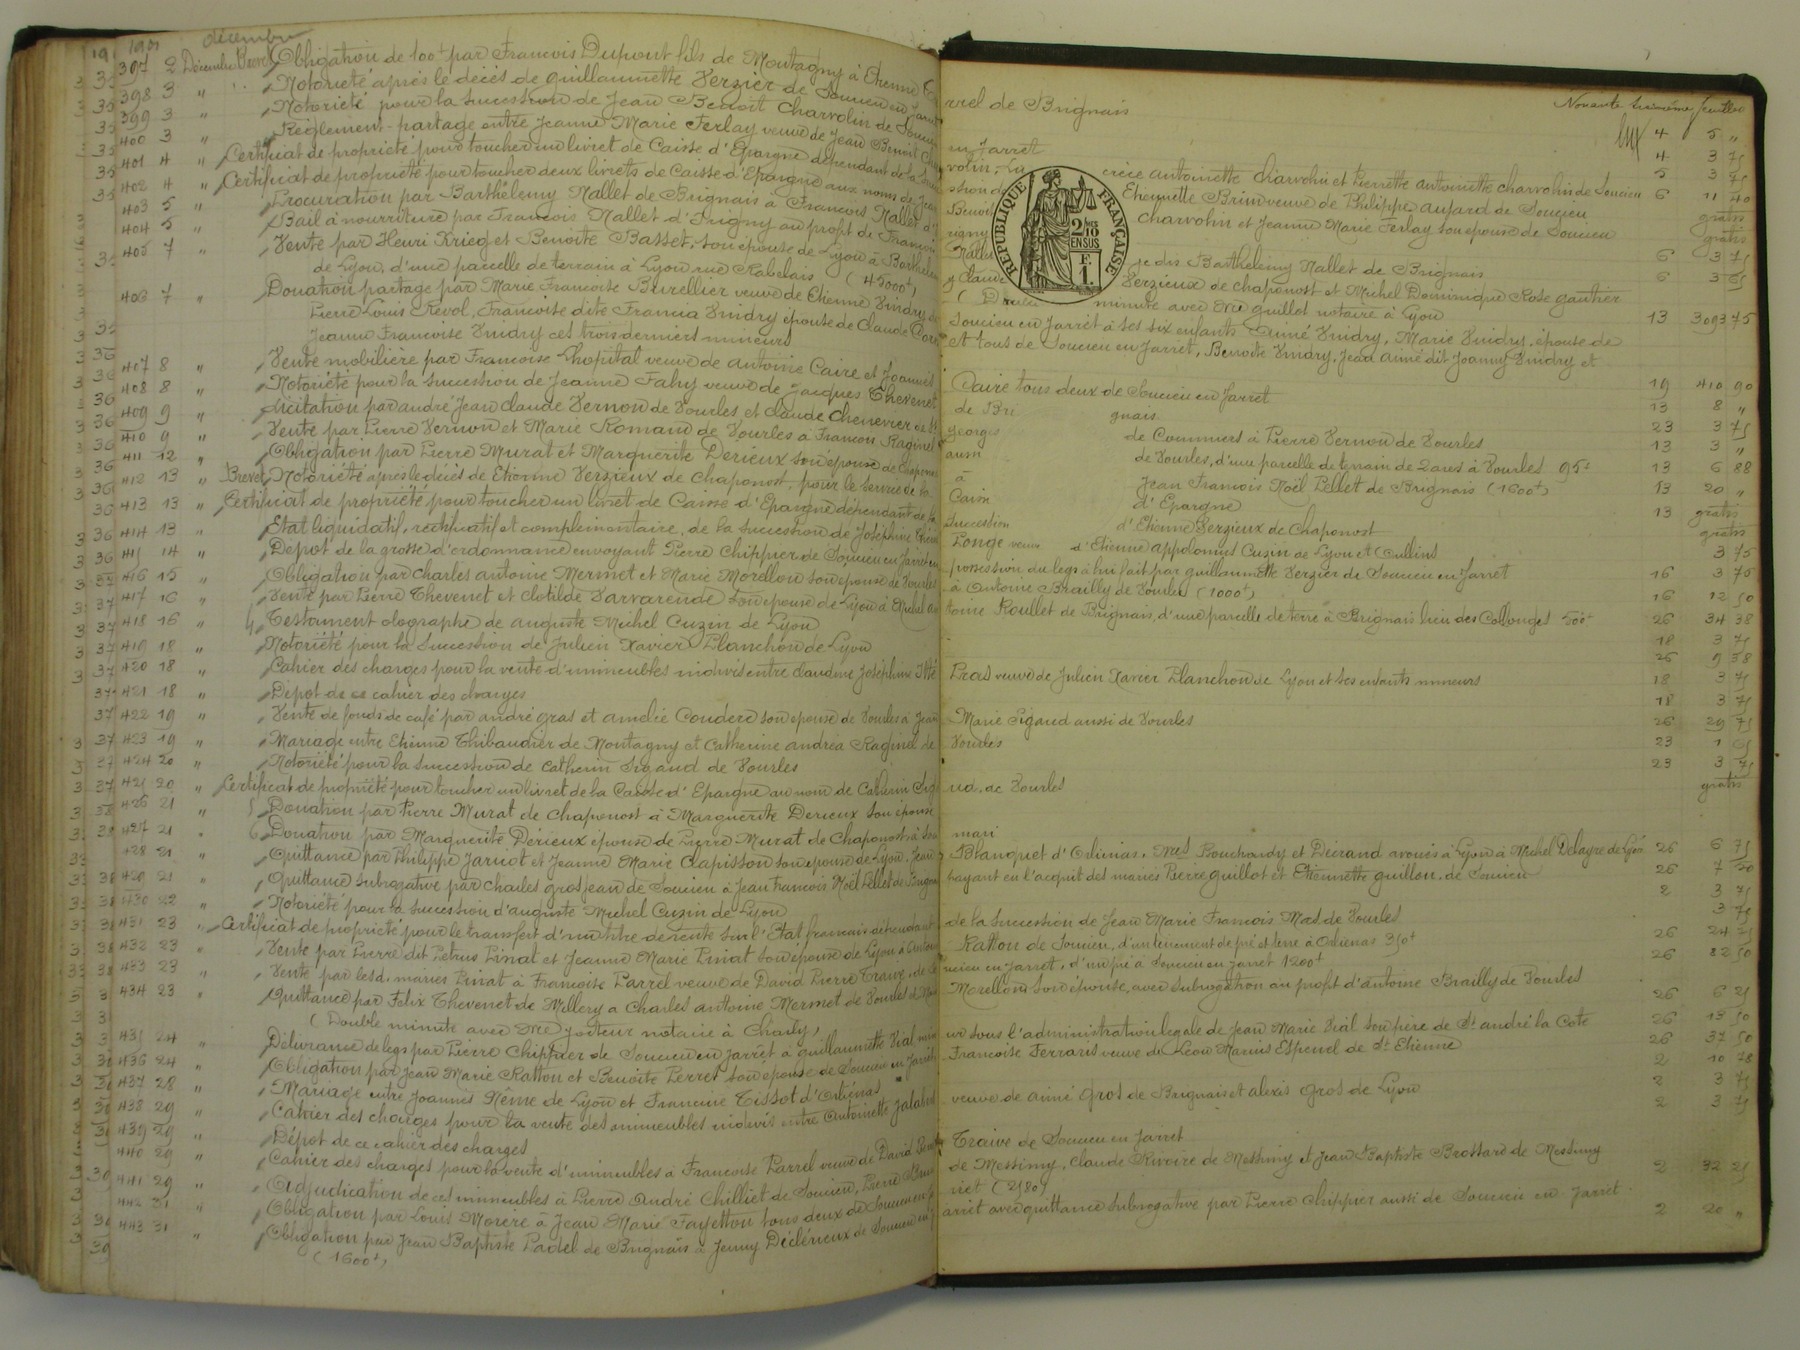 1901 décembre
397 2 Décembre Brevet Obligation de 100f par Francois Dupont fils de Montagny à Etienne
398 3 " Notoriété après le décès de guillaumette Verzier de Soucieu en Jarret
399 3 " Notoriété pour la succession de Jean Benoit Charvolin de Soucieu
400 3 " Règlement-partage entre Jeanne Marie Ferlay veuve de Jean Benoit Char
401 4 " Certificat de propriété pour toucher un livret de Caisse d'Epargne dépendant de la succes
402 4 " Certificat de propriété pour toucher deux livrets de Caisse d'Epargne aux noms de Jean
403 5 " Procuration par Barthélemy Nallet de Brignais à Francois Nallet d'I
404 5 " Bail à nourriture par Francois Nallet d'Irigny au profit de Francois
405 7 " Vente par Henri Krieg et Benoite Basset, son épouse de Lyon à Barthélemy
de Lyon, d'une parcelle de terrain à Lyon rue Rabelais (45000f)
406 7 " Donation partage par Marie Francoise Burellier veuve de Etienne Vindry de
Pierre Louis Revol, Francoise dite Francia Vindry épouse de Claude
Jeanne Francoise Vindry ces trois derniers mineurs
407 8 " Vente mobilière par Francoise Lhopital veuve de antoine Caire et Joannès
408 8 " Notoriété pour la succession de Jeanne Fahy veuve de Jacques Thevenet
409 9 " Licitation par andré Jean Claude Vernon de Vourles et Claude Chenevier de St
410 9 " Vente par Pierre Vernon et Marie Romand de Vourles à Francois Raginel
411 12 " Obligation par Pierre Murat et Marguerite Derieux son épouse de Chaponost
412 13 " Brevet Notoriété après le décès de Etienne Verzieux de Chaponost, pour le service de la
413 13 " Certificat de propriété pour toucher un livret de Caisse d'Epargne dépendant de la
414 13 " Etat liquidatif, rectificatif et complémentaire, de la succession de Joséphine
415 14 " Depot de la grosse d'ordonnance envoyant Pierre Chippier de Soucieu en Jarret en
416 15 " Obligation par Charles antoine Mermet et Marie Morellon son épouse de Vourles
417 16 " Vente par Pierre Thevenet et Clotilde Varvarende son épouse de Lyon à Michel an
418 16 " Testament olographe de auguste Michel Cuzin de Lyon
419 18 " Notoriété pour la succession de Julien Xavier Planchon de Lyon
420 18 " Cahier des charges pour la vente d'immeubles indivis entre Claudine Joséphine
421 18 " Dépot de ce cahier des charges
422 19 " Vente de fonds de café par andré gras et amélie Couderc son épouse de Vourles à Jean
423 19 " Mariage entre Etienne Thibaudier de Montagny et Catherine andréa Raginel de
424 20 " Notoriété pour la succession de Catherin Sigaud de Vourles
425 20 " Certificat de propriété pour toucher un livret de la Caisse d'Epargne au nom de Catherin Siga
426 21 " Donation par Pierre Murat de Chaponost à Marguerite Derieux son épouse
427 21 " Donation par Marguerite Dérieux épouse de Pierre Murat de Chaponost à son
428 21 " Quittance par Philippe Jaricot et Jeanne Marie Clapisson son épouse de Lyon, Jean
429 21 " Quittance subrogative par Charles grosjean de Soucieu à Jean Francois Noël Pellet de Brignais
430 22 " Notoriété pour la succession d'auguste Michel Cuzin de Lyon
431 23 " Certificat de propriété pour le transfert d'un titre de rente sur l'Etat francais dépendant
432 23 " Vente par Pierre dit Petrus Pinat et Jeanne Marie Pinat son épouse de Lyon à Antoine
433 23 " Vente par lesd. mariés Pinat à Francoise Parrel veuve de David Pierre Traive, de
434 23 " Quittance par Félix Thevenet de Millery à Charles antoine Mermet de Vourles et Marie
(Double minute avec Me notaire à Charly)
435 24 " Délivrance de legs par Pierre Chippier de Soucieu en Jarret à guillaumette Vial min
436 24 " Obligation par Jean Marie Ratton et Benoite Perret son épouse de Soucieu en Jarret
437 28 " Mariage entre Joannès Rême de Lyon et Francine Tissot d'Orliénas
438 29 " Cahier des charges pour la vente des immeubles indivis entre Antoinette
439 29 " Dépot de ce cahier des charges
440 29 " Cahier des charges pour la vente d'immeubles à Francoise Parrel veuve de David Pierre
441 29 " Adjudication de ces immeubles à Pierre André Chilliet de Soucieu, Pierre
442 31 " Obligation par Louis Morere à Jean Marie Fayetton tous deux de Soucieu en J
443 31 " Obligation par Jean Baptiste Padel de Brignais à Jenny Déclérieux de Soucieu en J
(1600f)
Nonante huitième feuillet
vrel de Brignais 4 5 "
en Jarret 4 3 75
volin, La crice Antoinette Charvolin et Pierrette antoinette charvolin de Soucieu 5 3 75
ssion de Etiennette Brun veuve de Philippe aujard de Soucieu 6 11 40
Benoit Charvolin et Jeanne Marie Ferlay son épouse de Soucieu gratis
rigny gratis
Nallet je dis Barthélemy Nallet de Brignais 6 3 75
y Claude Verzieux de chaponost et Michel Dominique Rose gautier 6 3 65
(Double minute avec Me guillot notaire à Lyon 13 3093 75
Soucieu en Jarret à ses six enfants Aimé Vindry, Marie Vindry, épouse de
et tous de Soucieu en Jarret, Benoite Vindry, Jean aimé dit Joanny Vindry et
RÉPUBLIQUE FRANÇAISE
2/10 EN SUS
F. 1
Caire tous deux de Soucieu en Jarret 19 410 90
de Bri gnais 13 8 "
georges de Commiers à Pierre Vernon de Vourles 23 3 75
aussi de Vourles, d'une parcelle de terrain de 2 ares à Vourles 95f 13 3 "
à Jean Francois Noël Pellet de Brignais (1600f) 13 6 88
Caisse d'Epargne 13 20 "
succession d'Etienne Verzieux de Chaponost 13 gratis
Longe veuve d'Etienne appolonius Cuzin de Lyon et Oullins gratis
possession du legs à lui fait par guillaumette Verzier de Soucieu en Jarret 3 75
à Antoine Brailly de Vourles (1000f) 16 3 75
toine Roullet de Brignais, d'une parcelle de terre à Brignais lieu des Collonges 500f 16 12 50
26 34 38
18 3 75
26 9 38
Pras veuve de Julien Xavier Planchon de Lyon et ses enfants mineurs 18 3 75
18 3 75
Marie Sigaud aussi de Vourles 26 29 75
Vourles 23 1 65
23 3 75
ud, de Vourles gratis
mari
Blanquet d'Orliénas, Mes Bouchardy et Dicrand avoués à Lyon à Michel Delayre de Lyon 26 6 75
payant en l'acquit des mariés Pierre guillot et Etiennette guillon, de Soucieu 26 7 50
2 3 75
de la succession de Jean Marie Francois Mas de Vourles 3 75
Ratton de Soucieu, d'un tènement de pré et terre à Orliénas 350f 26 24 25
ucieu en Jarret, d'un pré à Soucieu en Jarret 1200f 26 82 50
Morellon son épouse, avec subrogation au profit d'antoine Brailly de Vourles
26 6 25
ur sous l'administration légale de Jean Marie Vial son père de St andré la Cote 26 13 50
Francoise Ferraris veuve de Léon Marius Espenel de St Etienne 26 37 50
2 10 78
veuve de aimé Gros de Brignais et alexis Gros de Lyon 2 3 75
2 3 75
Traive de Soucieu en Jarret
de Messimy, Claude Rivoire de Messimy et Jean Baptiste Brossard de Messimy
riet (2180f) 2 32 25
arret avec quittance subrogative par Pierre Chippier aussi de Soucieu en Jarret
2 20 "